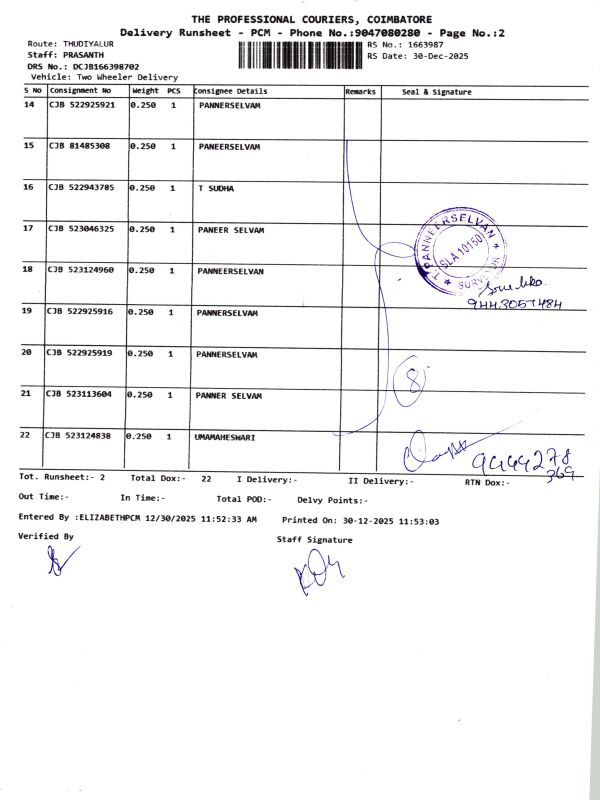 THE PROFESSIONAL COURIERS, COIMBATORE
Delivery Runsheet - PCM - Phone No.:9047080280 - Page No.:2
Route: THUDIYALUR RS No.: 1663987
Staff: PRASANTH RS Date: 30-Dec-2025
DRS No.: DCJB166398702
Vehicle: Two Wheeler Delivery
S No Consignment No Weight PCS Consignee Details Remarks Seal & Signature
14 CJB 522925921 0.250 1 PANNERSELVAM
15 CJB 81485308 0.250 1 PANEERSELVAM
16 CJB 522943785 0.250 1 T SUDHA
17 CJB 523046325 0.250 1 PANEER SELVAM
T. PANNEERSELVAN * SURVEYOR *
SLA 10150
18 CJB 523124960 0.250 1 PANNEERSELVAN
9443057484
19 CJB 522925916 0.250 1 PANNERSELVAM
20 CJB 522925919 0.250 1 PANNERSELVAM
8
21 CJB 523113604 0.250 1 PANNER SELVAM
22 CJB 523124838 0.250 1 UMAMAHESWARI
9444278
369
Tot. Runsheet:- 2 Total Dox:- 22 I Delivery:- II Delivery:- RTN Dox:-
Out Time:- In Time:- Total POD:- Delvy Points:-
Entered By :ELIZABETHPCM 12/30/2025 11:52:33 AM Printed On: 30-12-2025 11:53:03
Verified By Staff Signature